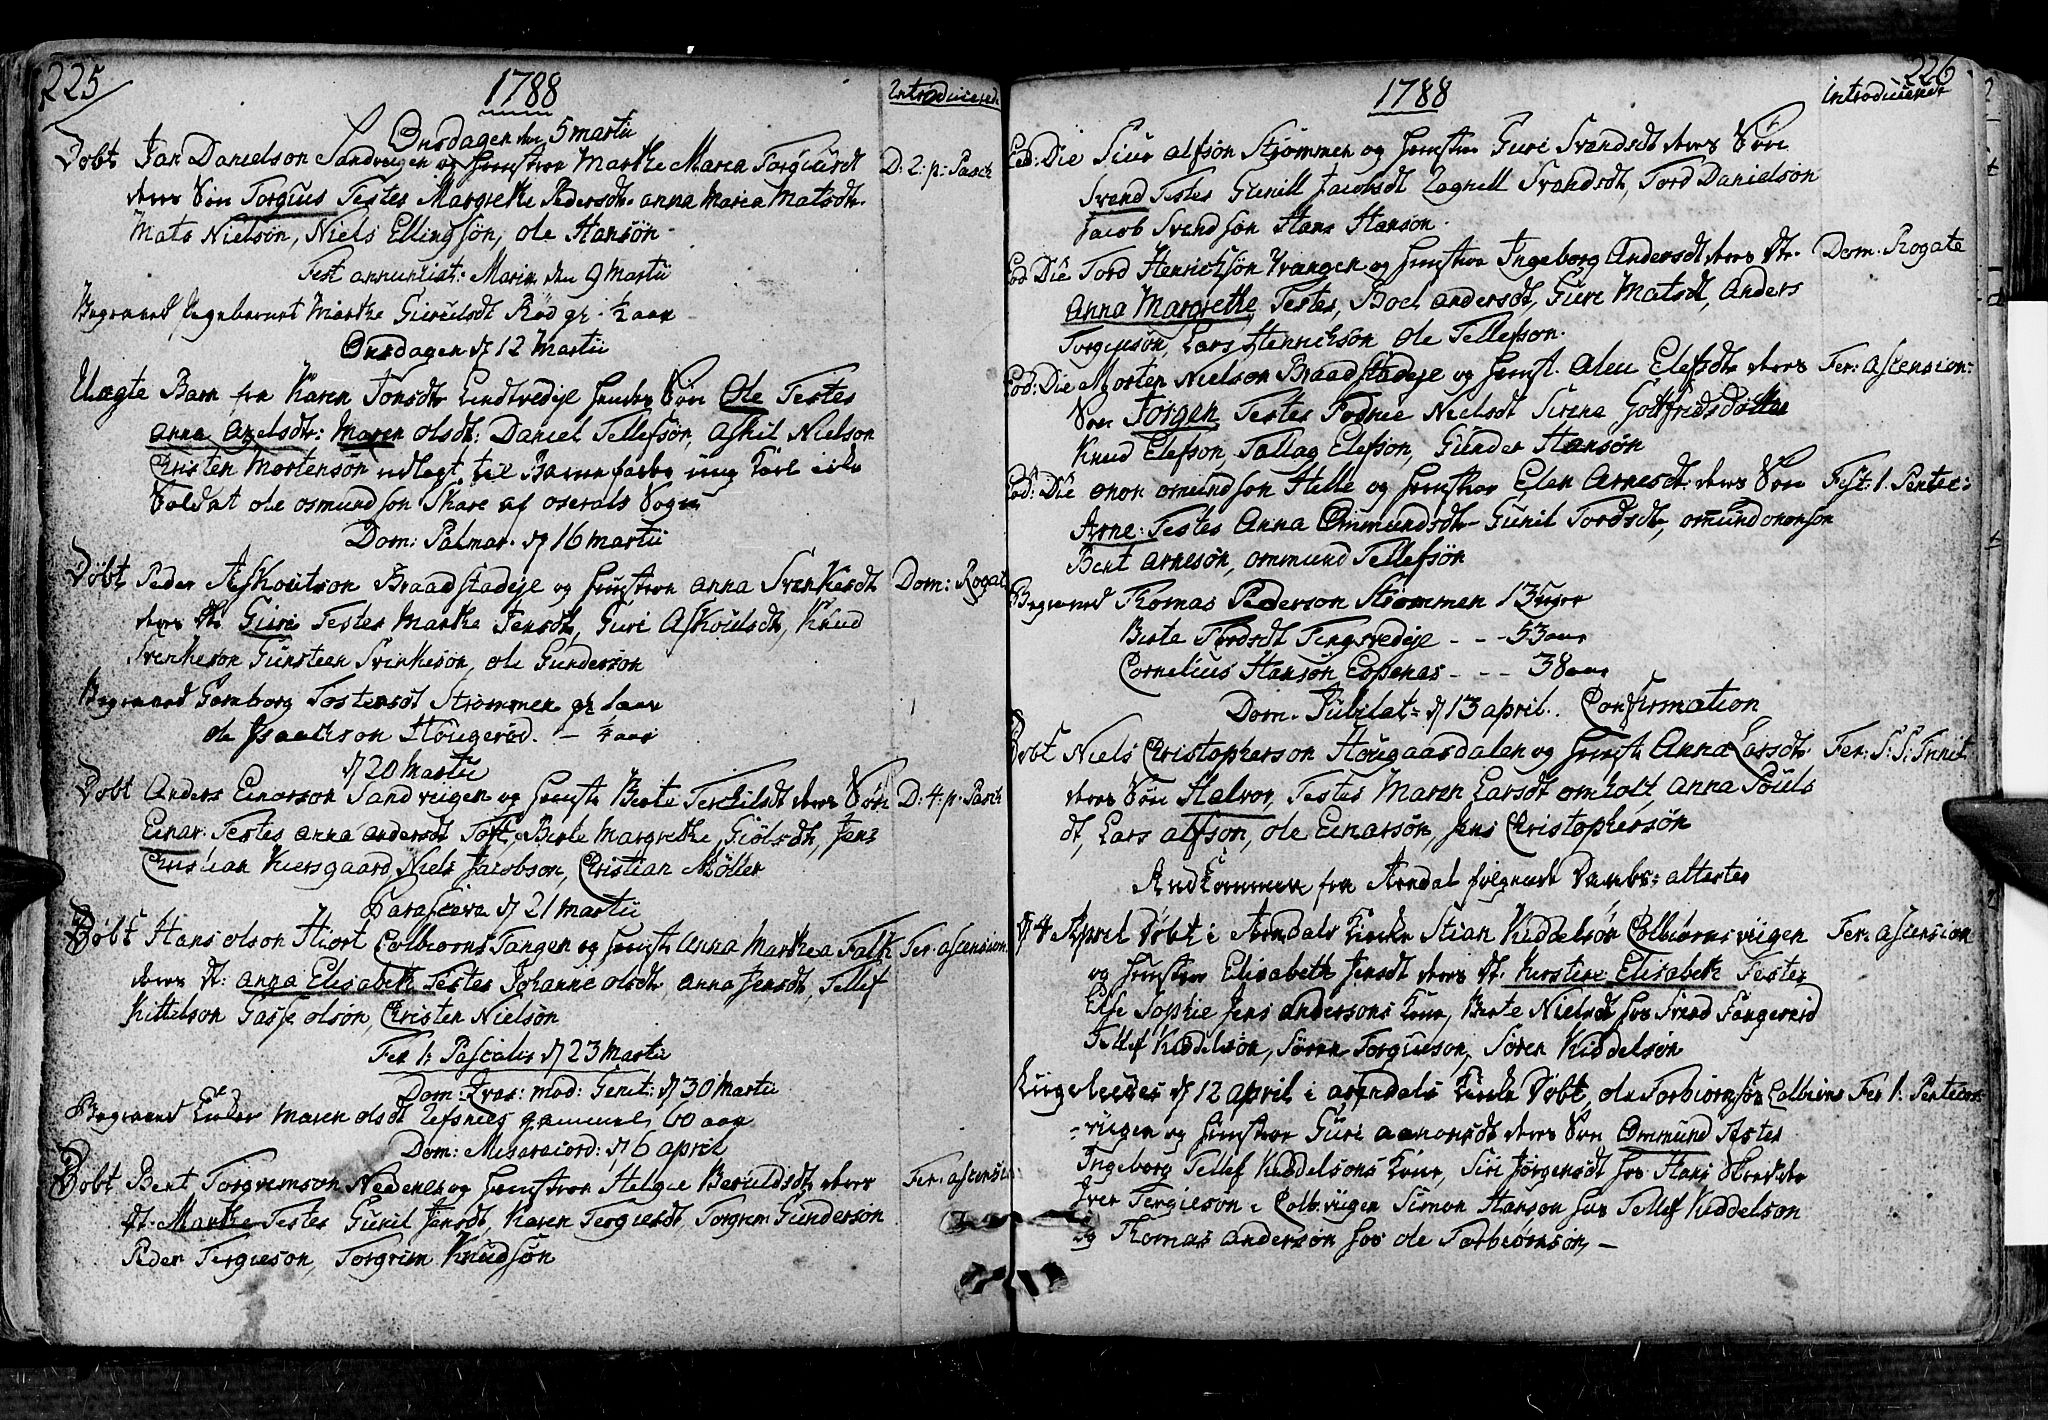 225
1788
Introducered
Onsdagen den 5 martii
Døbt Jan Danielson Sandviigen og Hustroe Marthe Maria Torgiusdt D: 2: p: Pasch
deres Søn Torgius Testes Margrethe Pedersdt. anna Maria Matsdt.
Mats Nielsøn, Niels Ellingsøn, ole Hansøn
Fest annunciat: Mariæ den 9 Martii
Begraved Pigebarnet Marthe Giruldsdt Rød gl. ½ aar
Onsdagen d 12 Martii
Uægte Barn fra Karen Jonsdt. Lindtvedeje hendes Søn Ole Testes
anna Axelsdt: Maren olsdt: Daniel Tellefsøn, Askil Nielson
Cristen Mortensøn udlagt til Barnefader ung Karl
Soldat ole osmundson Skare af oserals Sogn
Dom: Palmar. d 16 martii
Døbt Peder Askoutson Braadstadeje og Hustroe anna Svenkesdt Dom: Rogat
deres dt. Guri Testes Marthe Jensdt, Guri Askoulsdt, Knud
Svenkeson Gunsteen Svinkesøn, ole Gunderson
Begraved Gomborg Tostensdt Strømmen gl 1 aar
ole Isaachson Hougerød. - ¼ aar
d 20 Martii
Døbt Anders Einarson Sandviigen og Hustr. Berte Terkilsdt deres Søn D: 4: p: Pasch
Einar. Testes anna andersdt Toft, Berte Margrethe, Giølsdt, Jens
Christian Kiersgaard, Niels Jacobson, Christian Møller
Parasceve d 21 martii
Døbt Hans olson Hiort Colbiørns Tangen og Hustr. Anna Marthea Falk Fer: ascension:
deres dt: anna Elisabeth Testes Johanne olsdt, anna Jensdt, Tellef
Kittelson Gasse olson, Christen Nielsøn
Fer 1: Pascalis d 23 Martii
Dom: Qvas: mod: Genit: d 30 Martii
Begraved Enker Maren olsdt Refsnes gammel 60 aar
Dom: Misericord: d 6 april
Døbt Bent Torgrimson Nedenes og Hustroe Helge Beruldsdt, deres Fer: ascensi
dt: Marthe Testes Gunil Jensdt, Karen Tergiesdt, Torgrim Gundersøn
Peder Tergieson, Torgrim Knudsøn
226
1788
introducered
Eod: Die Siur alfsøn Strømmen og Hustroe Guri Svendsdt deres Søn
Svend Testes Gunill Jacobsdt Ragnill Svendsdt, Tord Danielsøn
Jacob Svendsøn Hans Hanson.
Eod Die Tord Henrichsøn Vrangen og Hustroe Ingeborg Andersdt deres dt. Dom: Rogate
Anna Margrethe, Testes, Boel andersdt, Guri Matsdt, Anders
Torgiusøn, Lars Henrichson ole Tellefson.
Eod: Die Morten Nielson Braadstadeje og Hust. Aleu Elefsdt. deres Fer: ascension:
Søn Jørgen Testes Todnie Nielsdt Sirena Gotfridsdøtter
Knud Elefson, Tallag Elefson, Gunder Hansøn
Eod: Die onon omundson Helle og Hustroe Elen Arnesdt: deres Søn Fest: 1. Pentec:
Arne: Testes Anna Ommundsdt. Gunil Tordsdt, omund ononson
Bent arnesøn, ommund Tellefsøn
Begraved Thomas Pederson Strømmen 13 uger
Berte Tordsdt Tingsvedeje - - - 53 aar
Cornelius Hansøn Espenæs - - - 38 aar
Dom. Jubilat: d 13 april. Confirmation
Døbt Niels Christopherson Hougaardalen og Hustr. Anna Larsdt. Fer: S: S: Trinit
deres Søn Halvor, Testes Maren Larsdt omholt anna Pouls
dt, Lars alfson, ole Einarsøn, Jens Christophersøn
Indkommen fra Arendal følgende Daabs: attester
d 4 April døbt i Arendals Kirke Stian Kiddelsøn Colbiørnsviigen Fer: ascension
og Hustroe Elisabeth Jensdt deres dt. Kirstine Elisabeth Testes
Else Sophie Jens andersons Kone, Berte Nielsdt hos Svend Songevold
Tellef Kiddelsøn, Søren Torgiuson, Søren Kiddelsøn
Ligeledes d 12 april i arendals Kirke Døbt, ole Torbiørnsøn Colbiørns Fer 1: Pentecos
viigen og Hustroe Guri aanonsdt deres Søn Ommund Testes
Ingeborg Tellef Kiddelsons Kone, Siri Jørgensdt hos Hans
Iver Tergiesøn i Colbviigen Simon Hanson hos Tellef Kiddelson
og Thomas andersøn hos ole Torbiørnsøn, -